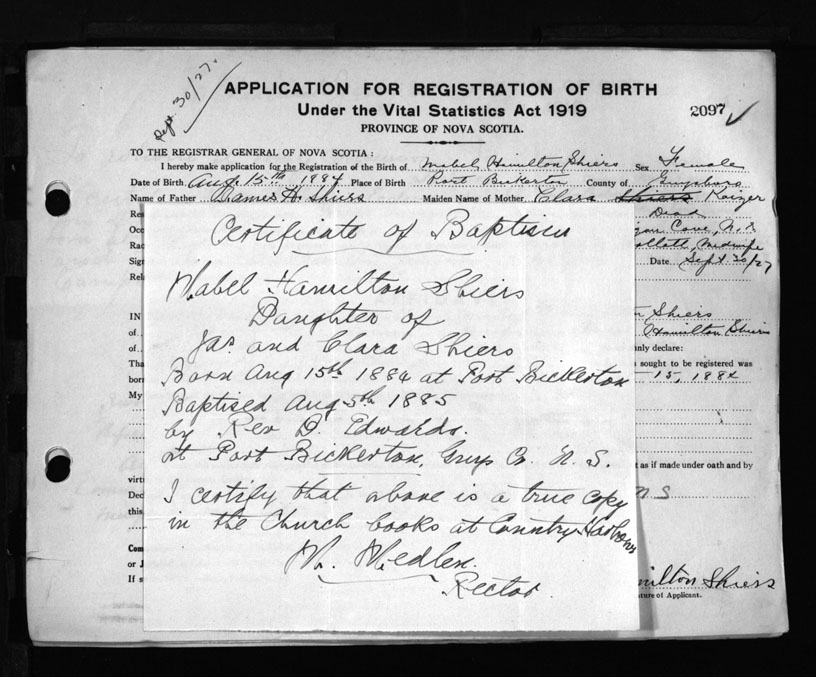 Sept 30/27.
APPLICATION FOR REGISTRATION OF BIRTH
Under the Vital Statistics Act 1919
2097
PROVINCE OF NOVA SCOTIA.
TO THE REGISTRAR GENERAL OF NOVA SCOTIA :
I hereby make application for the Registration of the Birth of Mabel Hamilton Shiers Sex Female
Date of Birth Aug. 15th 1884 Place of Birth Port Bickerton County of Guysboro
Name of Father James H. Shiers Maiden Name of Mother Clara Shiers Kaizer
Re Dead
Occ Cove, N.S.
Rac Midwife
Sig Date Sept 30/27
Rel
Certificate of Baptism
Mabel Hamilton Shiers
Daughter of
Jas. and Clara Shiers
Born Aug 15th 1884 at Port Bickerton
Baptised Aug 5th 1885
by Rev D. Edwards.
at Port Bickerton, Guys Co. N. S.
I certify that above is a true copy
in the Church books at Country Harbour
Rector.
IN Shiers
of Hamilton Shiers
of nly declare:
Tha sought to be registered was
born 15, 1884
My
t as if made under oath and by
virt
Dec N S
this
Com
or J
If s
milton Shiers
ture of Applicant.